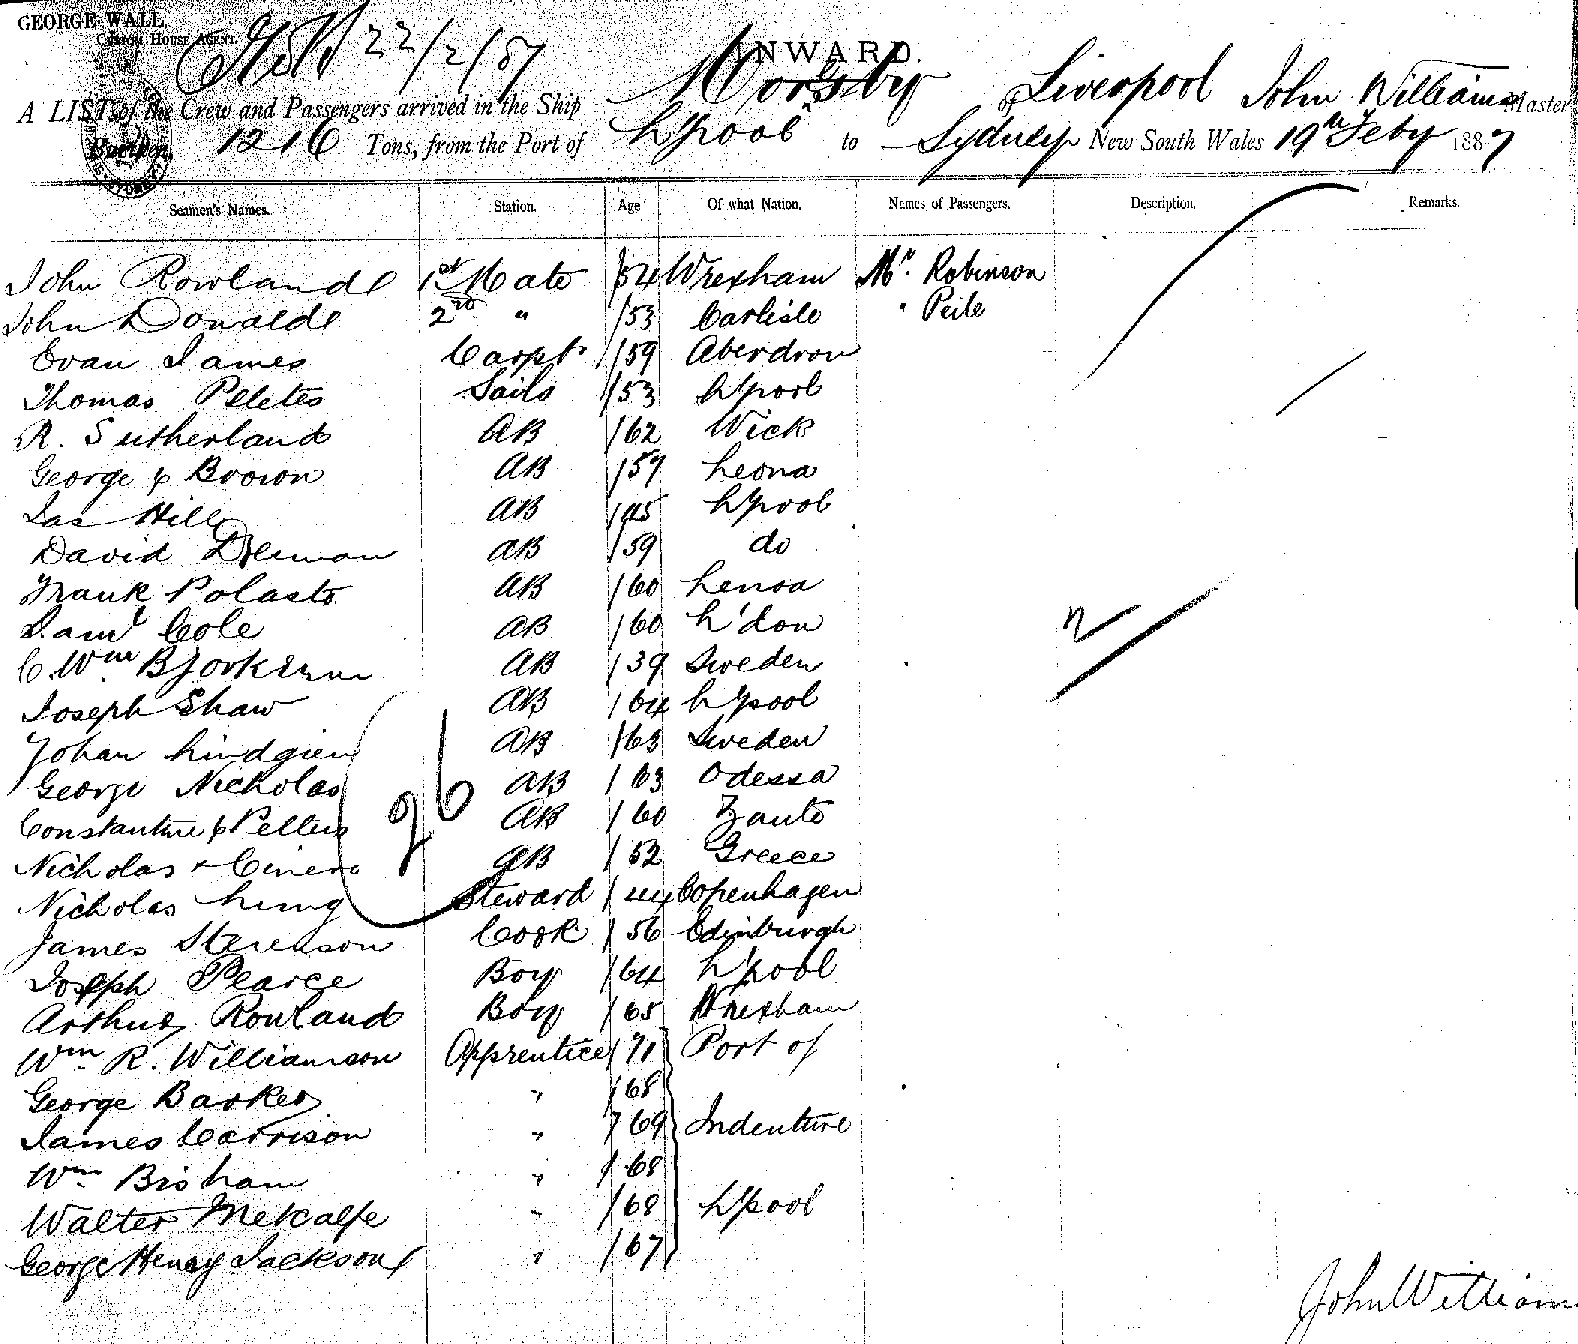 GEORGE WALL,
CUSTOM HOUSE AGENT.
22/2/87
INWARD.
A LIST of the Crew and Passengers arrived in the Ship Moresby of Liverpool John Williams Master
Burthen, 1216 Tons, from the Port of L'pool to Sydney New South Wales 19th Feby 1887
Seamen's Names. Station. Age Of what Nation. Names of Passengers. Description. Remarks.
John Rowland 1st Mate /54 Wrexham Mr. Robinson
John Donald 2nd " /53 Carlisle " Peile
Evan James Carpt. /59 Aberdron
Thomas Peletes Sails /53 L'pool
R. Sutherland AB /62 Wick
George Brown AB /57
Jas Hill AB /45 L'pool
David AB /59 do
Frank Polasto AB /60
Saml Cole AB /60 L'don
C. Wm AB /39 Sweden
Joseph Shaw AB /64 L'pool
Johan Lindgren AB /63 Sweden
George Nicholas AB /63 Odessa
Constantine AB /60 Zante
Nicholas AB /52 Greece
26
Nicholas Steward /44 Copenhagen
James Stevenson Cook /56 Edinburgh
Joseph Pearce Boy /64 L'pool
Arthur Rowland Boy /65 Wrexham
Wm R. Williamson Apprentice /71 Port of
George Barker " /68
James Carrison " /69 Indenture
Wm Bisham " /68
Walter Metcalfe " /68 L'pool
George Henry Jackson " /67
John William